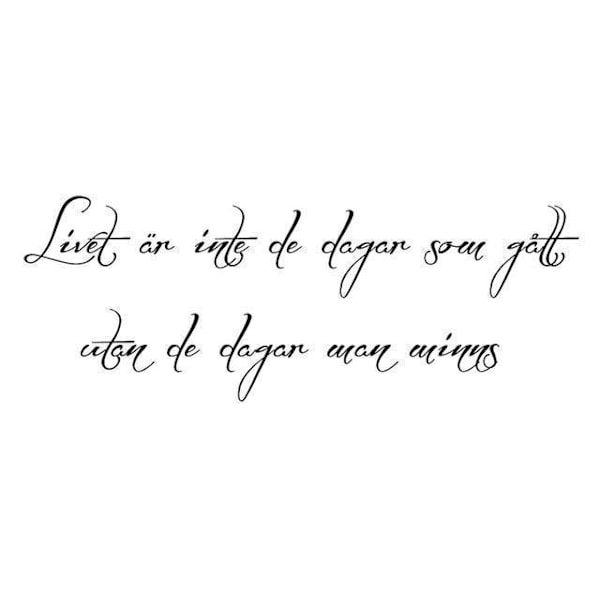 Livet är inte de dagar som gått
utan de dagar man minns